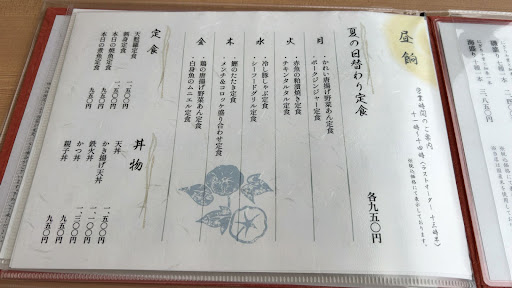 昼餉
営業時間のご案内
十一時〜十四時(ラストオーダー 十三時半)
夏の日替わり定食
各九五〇円
月
・かれい唐揚げ野菜あん定食
・ポークジンジャー定食
火
・赤魚の粕漬焼き定食
・チキンタルタル定食
水
・冷し豚しゃぶ定食
・シーフードグリル定食
木
・鰹のたたき定食
・メンチ&コロッケ盛り合わせ定食
金
・鶏の唐揚げ野菜あん定食
・白身魚のムニエル定食
定食
天麩羅定食 一、二五〇円
刺身定食 一、五〇〇円
本日の焼魚定食 一、〇五〇円
本日の煮魚定食 九五〇円
丼物
天丼 一、五〇〇円
かき揚げ天丼 九五〇円
鉄火丼 一、三〇〇円
かつ丼 一、一〇〇円
親子丼 九五〇円